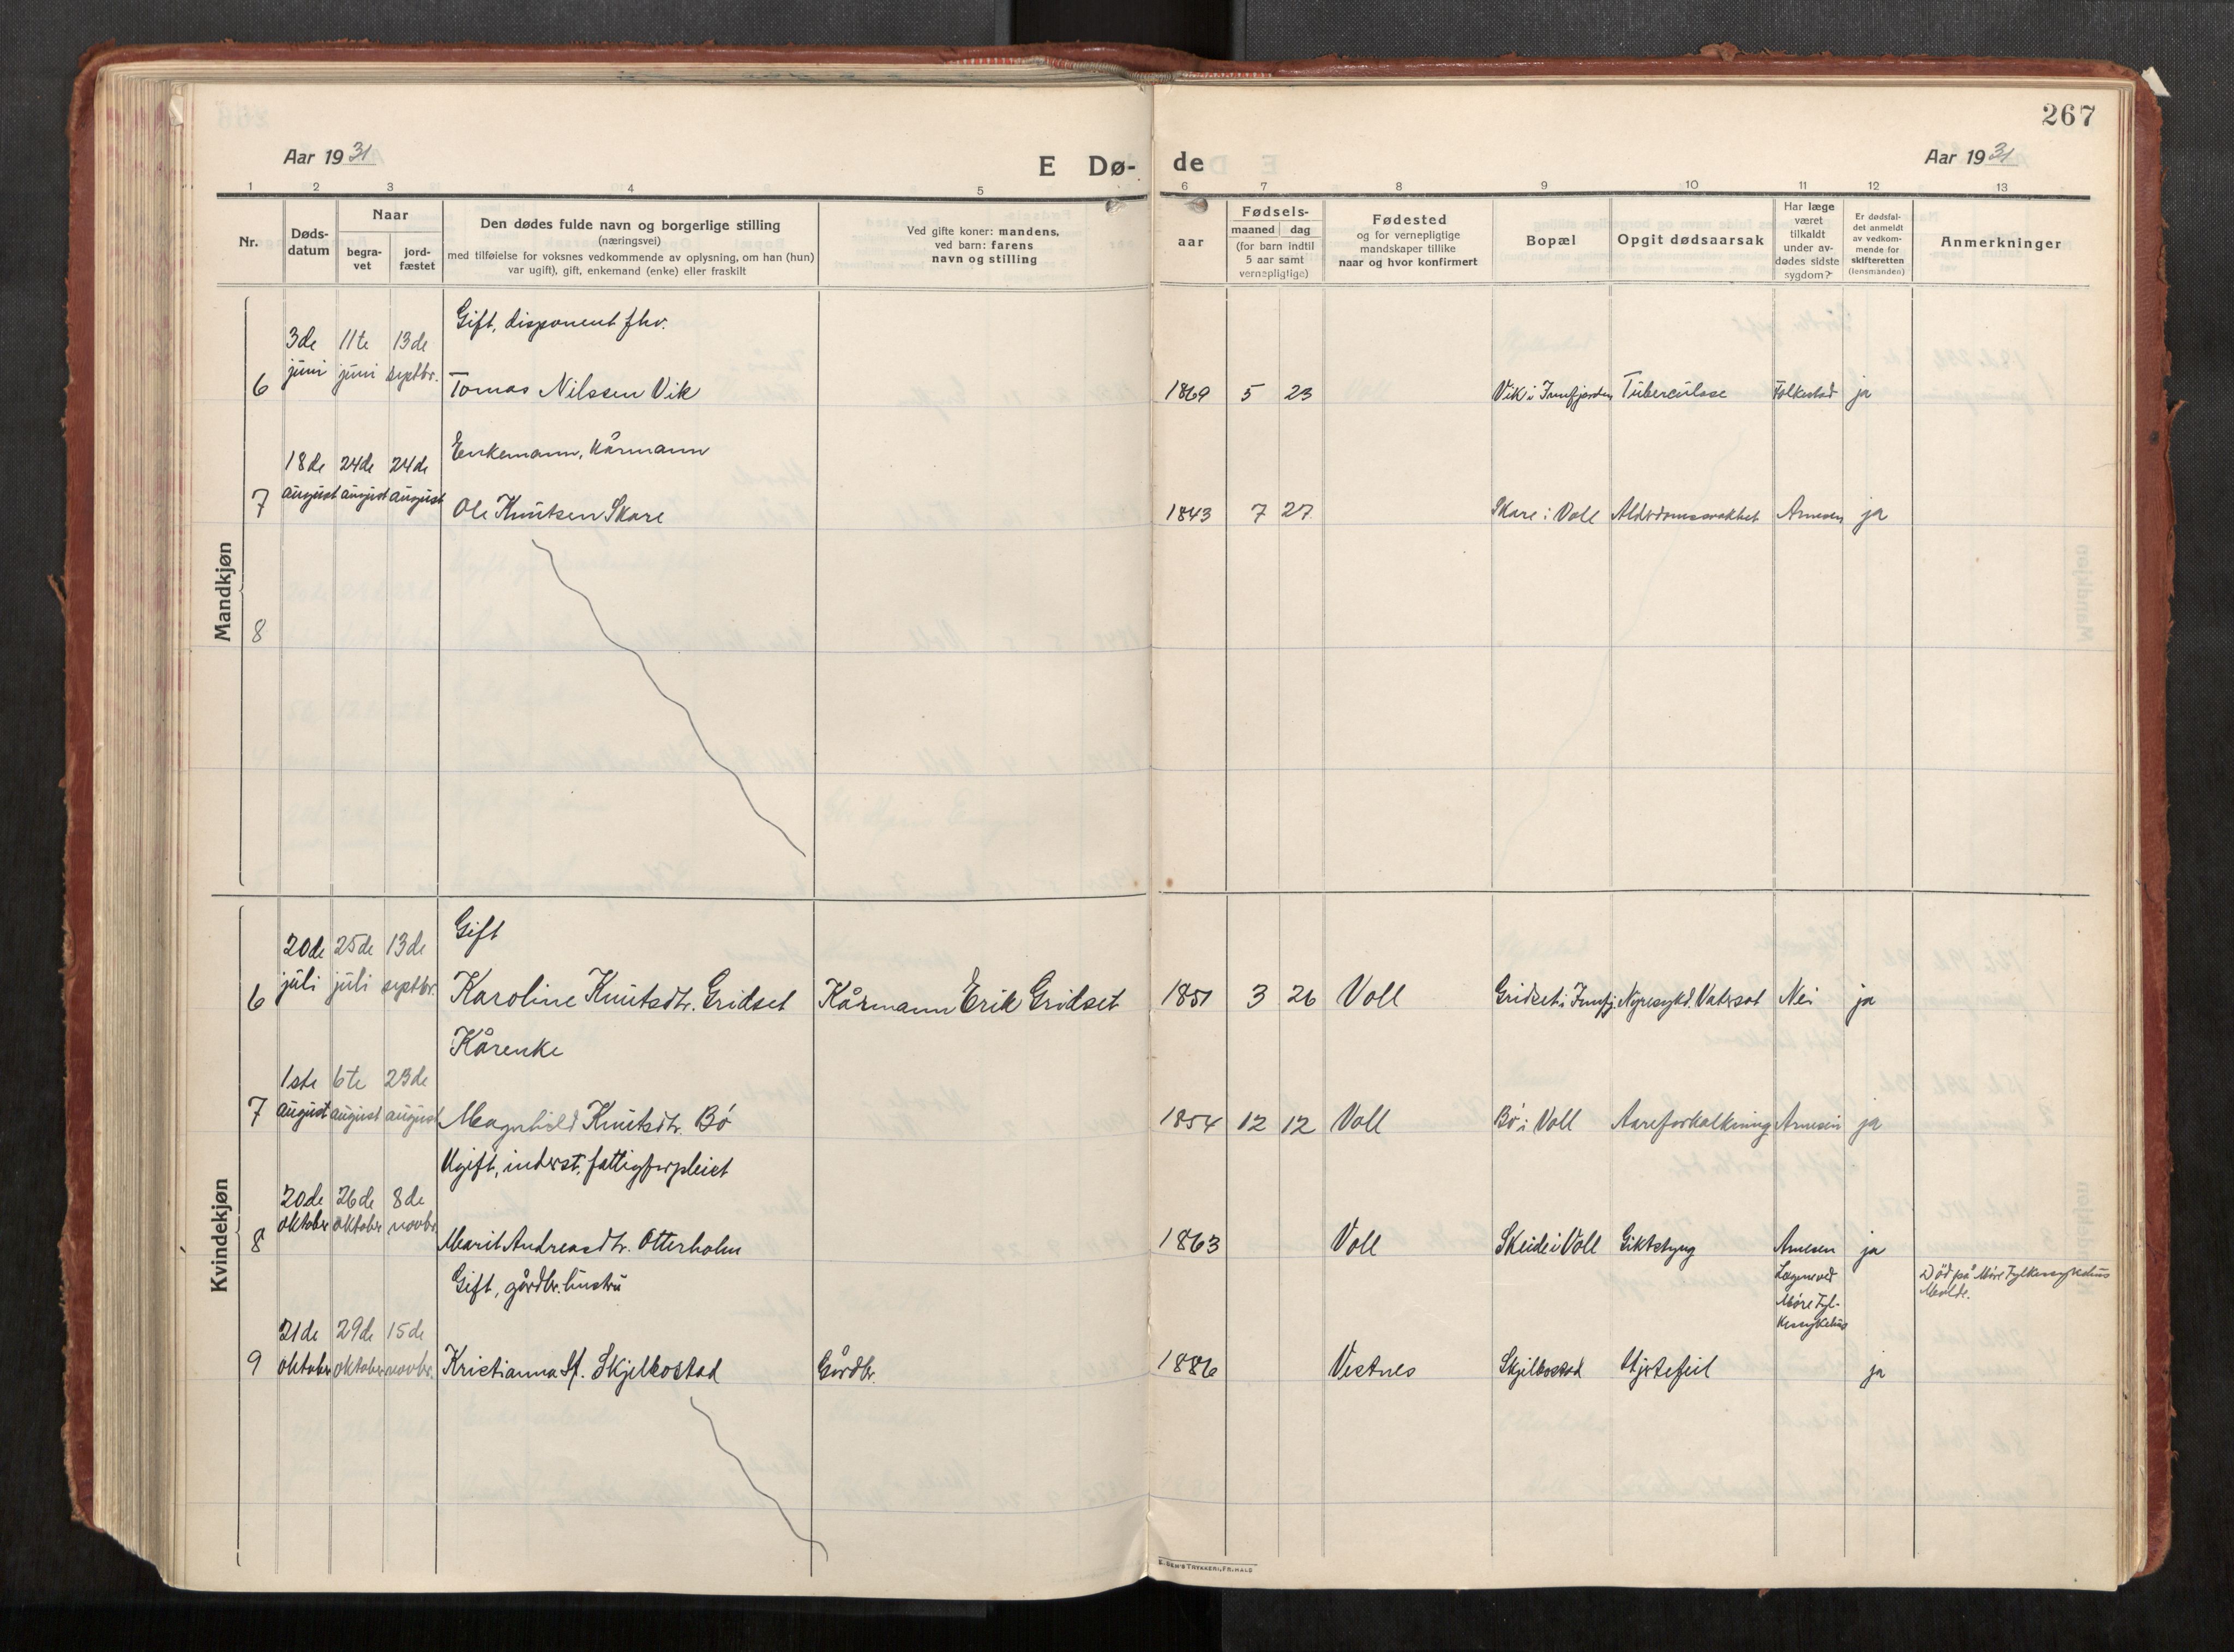 267
Aar 1931
E Dø-
de
Aar 1931
1 2 3 4 5 6 7 8 9 10 11 12 13
Nr.
Døds-
datum
Naar
begra-
vet
jord-
fæstet
Den dødes fulde navn og borgerlige stilling
(næringsvei)
med tilføielse for voksnes vedkommende av oplysning, om han (hun)
var ugift), gift, enkemand (enke) eller fraskilt
Ved gifte koner: mandens,
ved barn: farens
navn og stilling
aar
Fødsels-
maaned dag
(for barn indtil
5 aar samt
vernepligtige)
Fødested
og for vernepligtige
mandskaper tillike
naar og hvor konfirmert
Bopæl
Opgit dødsaarsak
Har læge
været
tilkaldt
under av-
dødes sidste
sygdom?
Er dødsfal-
det anmeldt
av vedkom-
mende for
skifteretten
(lensmanden)
Anmerkninger
Mandkjøn
Gift, disponent fhv.
3de 11te 13de
juni juni septbr.
6 Tomas Nilssen Vik 1869 5 23 Vik i Innfjorden Tuberculose Folkestad ja
Enkemann, kårmann
18de 24de 24de
august august august
7 Ole Knutsen Skare 1843 7 27 Skare i Voll Alderdomssvakhet Arnesen ja
8
Kvindekjøn
Gift
20de 25de 13de
juli juli septbr.
6 Karoline Knutsdtr. Gridset Kårmann Erik Gridset 1851 3 26 Voll Gridset i Innfj. Nyresykd. Vatersot Nei ja
Kårenke
1ste 6te 23de
august august august
7 Magnhild Knutsdtr. Bø 1854 12 12 Voll Bø i Voll Aareforkalkning Arnesen ja
Ugift, inderst, fattigforpleiet
20de 26de 8de
oktober oktober novbr.
8 Marit Andreasdtr. Otterholm 1863 Voll Skeide i Voll Giktstyng Arnesen ja
Gift, gårdbr. hustru
Lægene ved
Møre Fyl-
kessykehus
Død på Møre Fylkessykehus
Molde.
21de 29de 15de
oktober oktober novbr.
9 Kristianna Skjelbostad Gårdbr. 1886 Vestnes Skjelbostad Hjertefeil ja
E. SEM'S TRYKKERI, FR.HALD